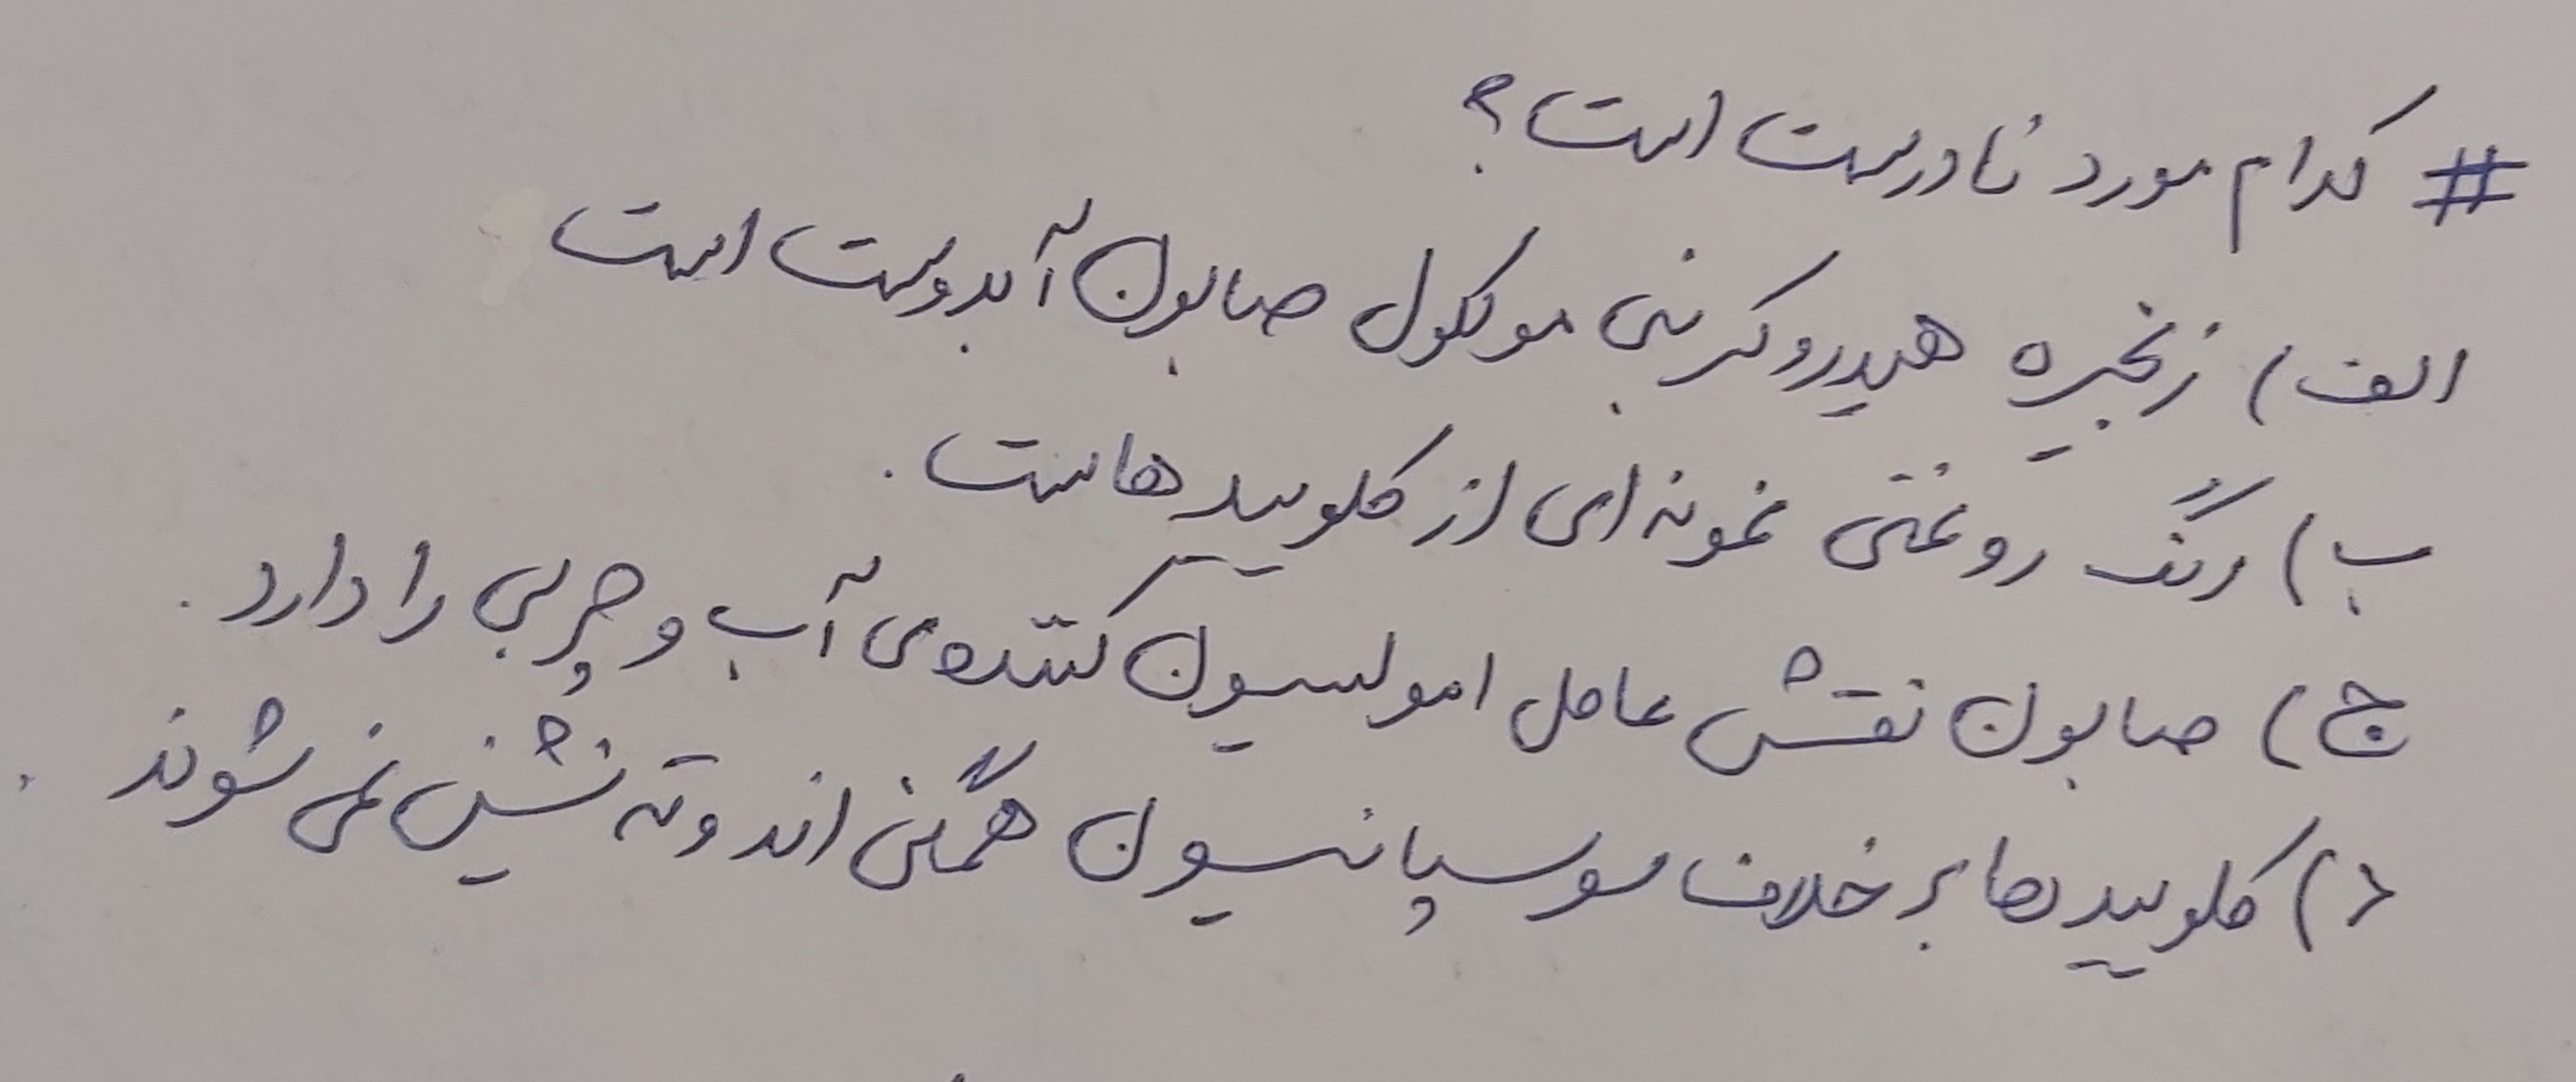 # کدام مورد نادرست است؟
الف) زنجیره هیدروکربنی مولکول صابون آبدوست است
ب) رنگ روغنی نمونه ای از کلویید هاست.
ج) صابون نقش عامل امولسیون کننده ی آب و چربی را دارد.
د) کلویید ها بر خلاف سوسپانسیون همگن اند و ته نشین نمی شوند.